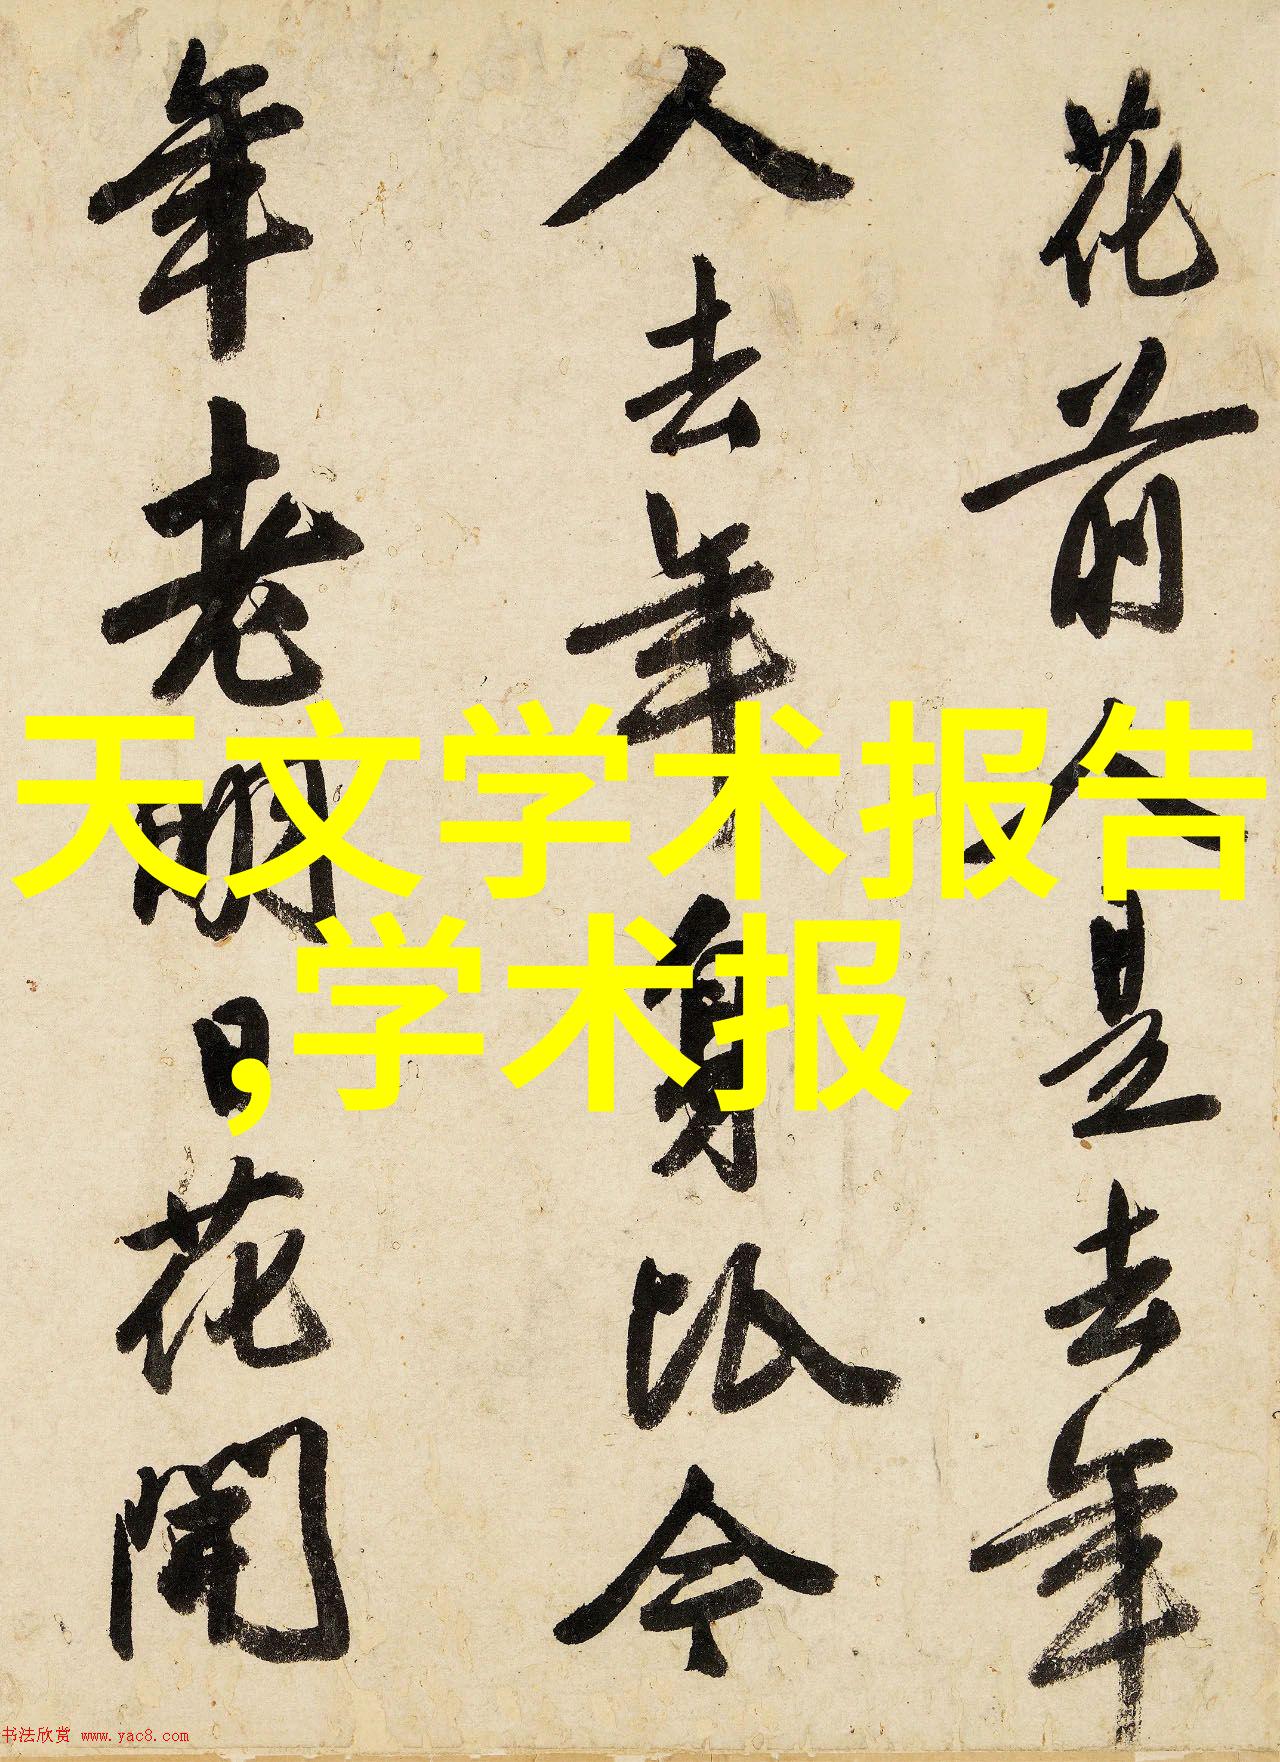 花前人是去年
人去年身比今
年老明日花開
天文学术报告
,学术报
书法欣赏 www.yac8.com